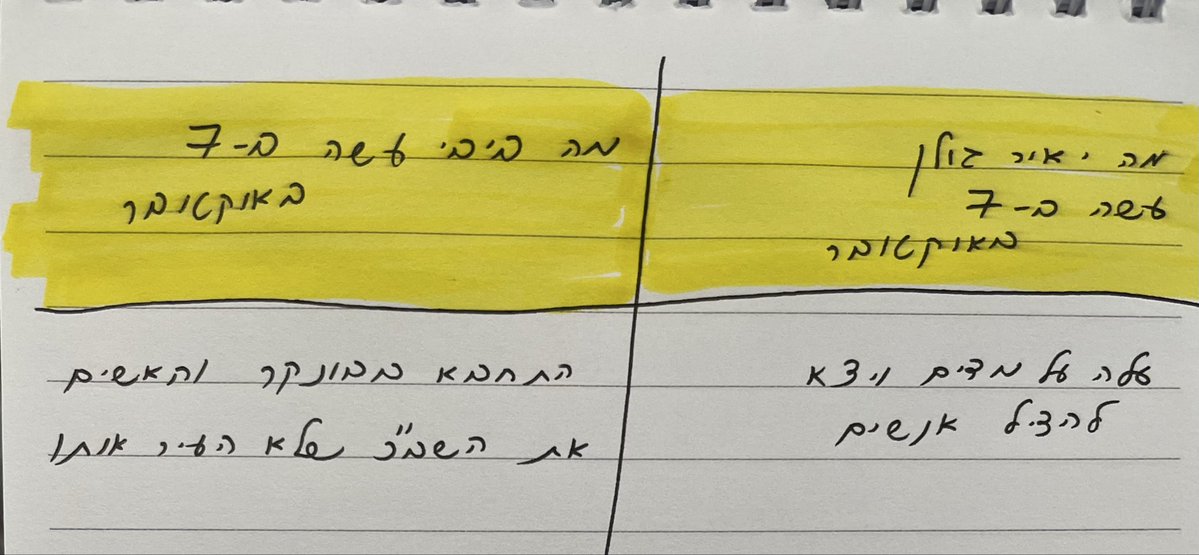 מה יאיר גולן
עשה ב-7
באוקטובר
עלה על מדים ויצא
להציל אנשים
מה ביבי עשה ב-7
באוקטובר
התחבא בבונקר והאשים
את השב"כ שלא העיר אותו